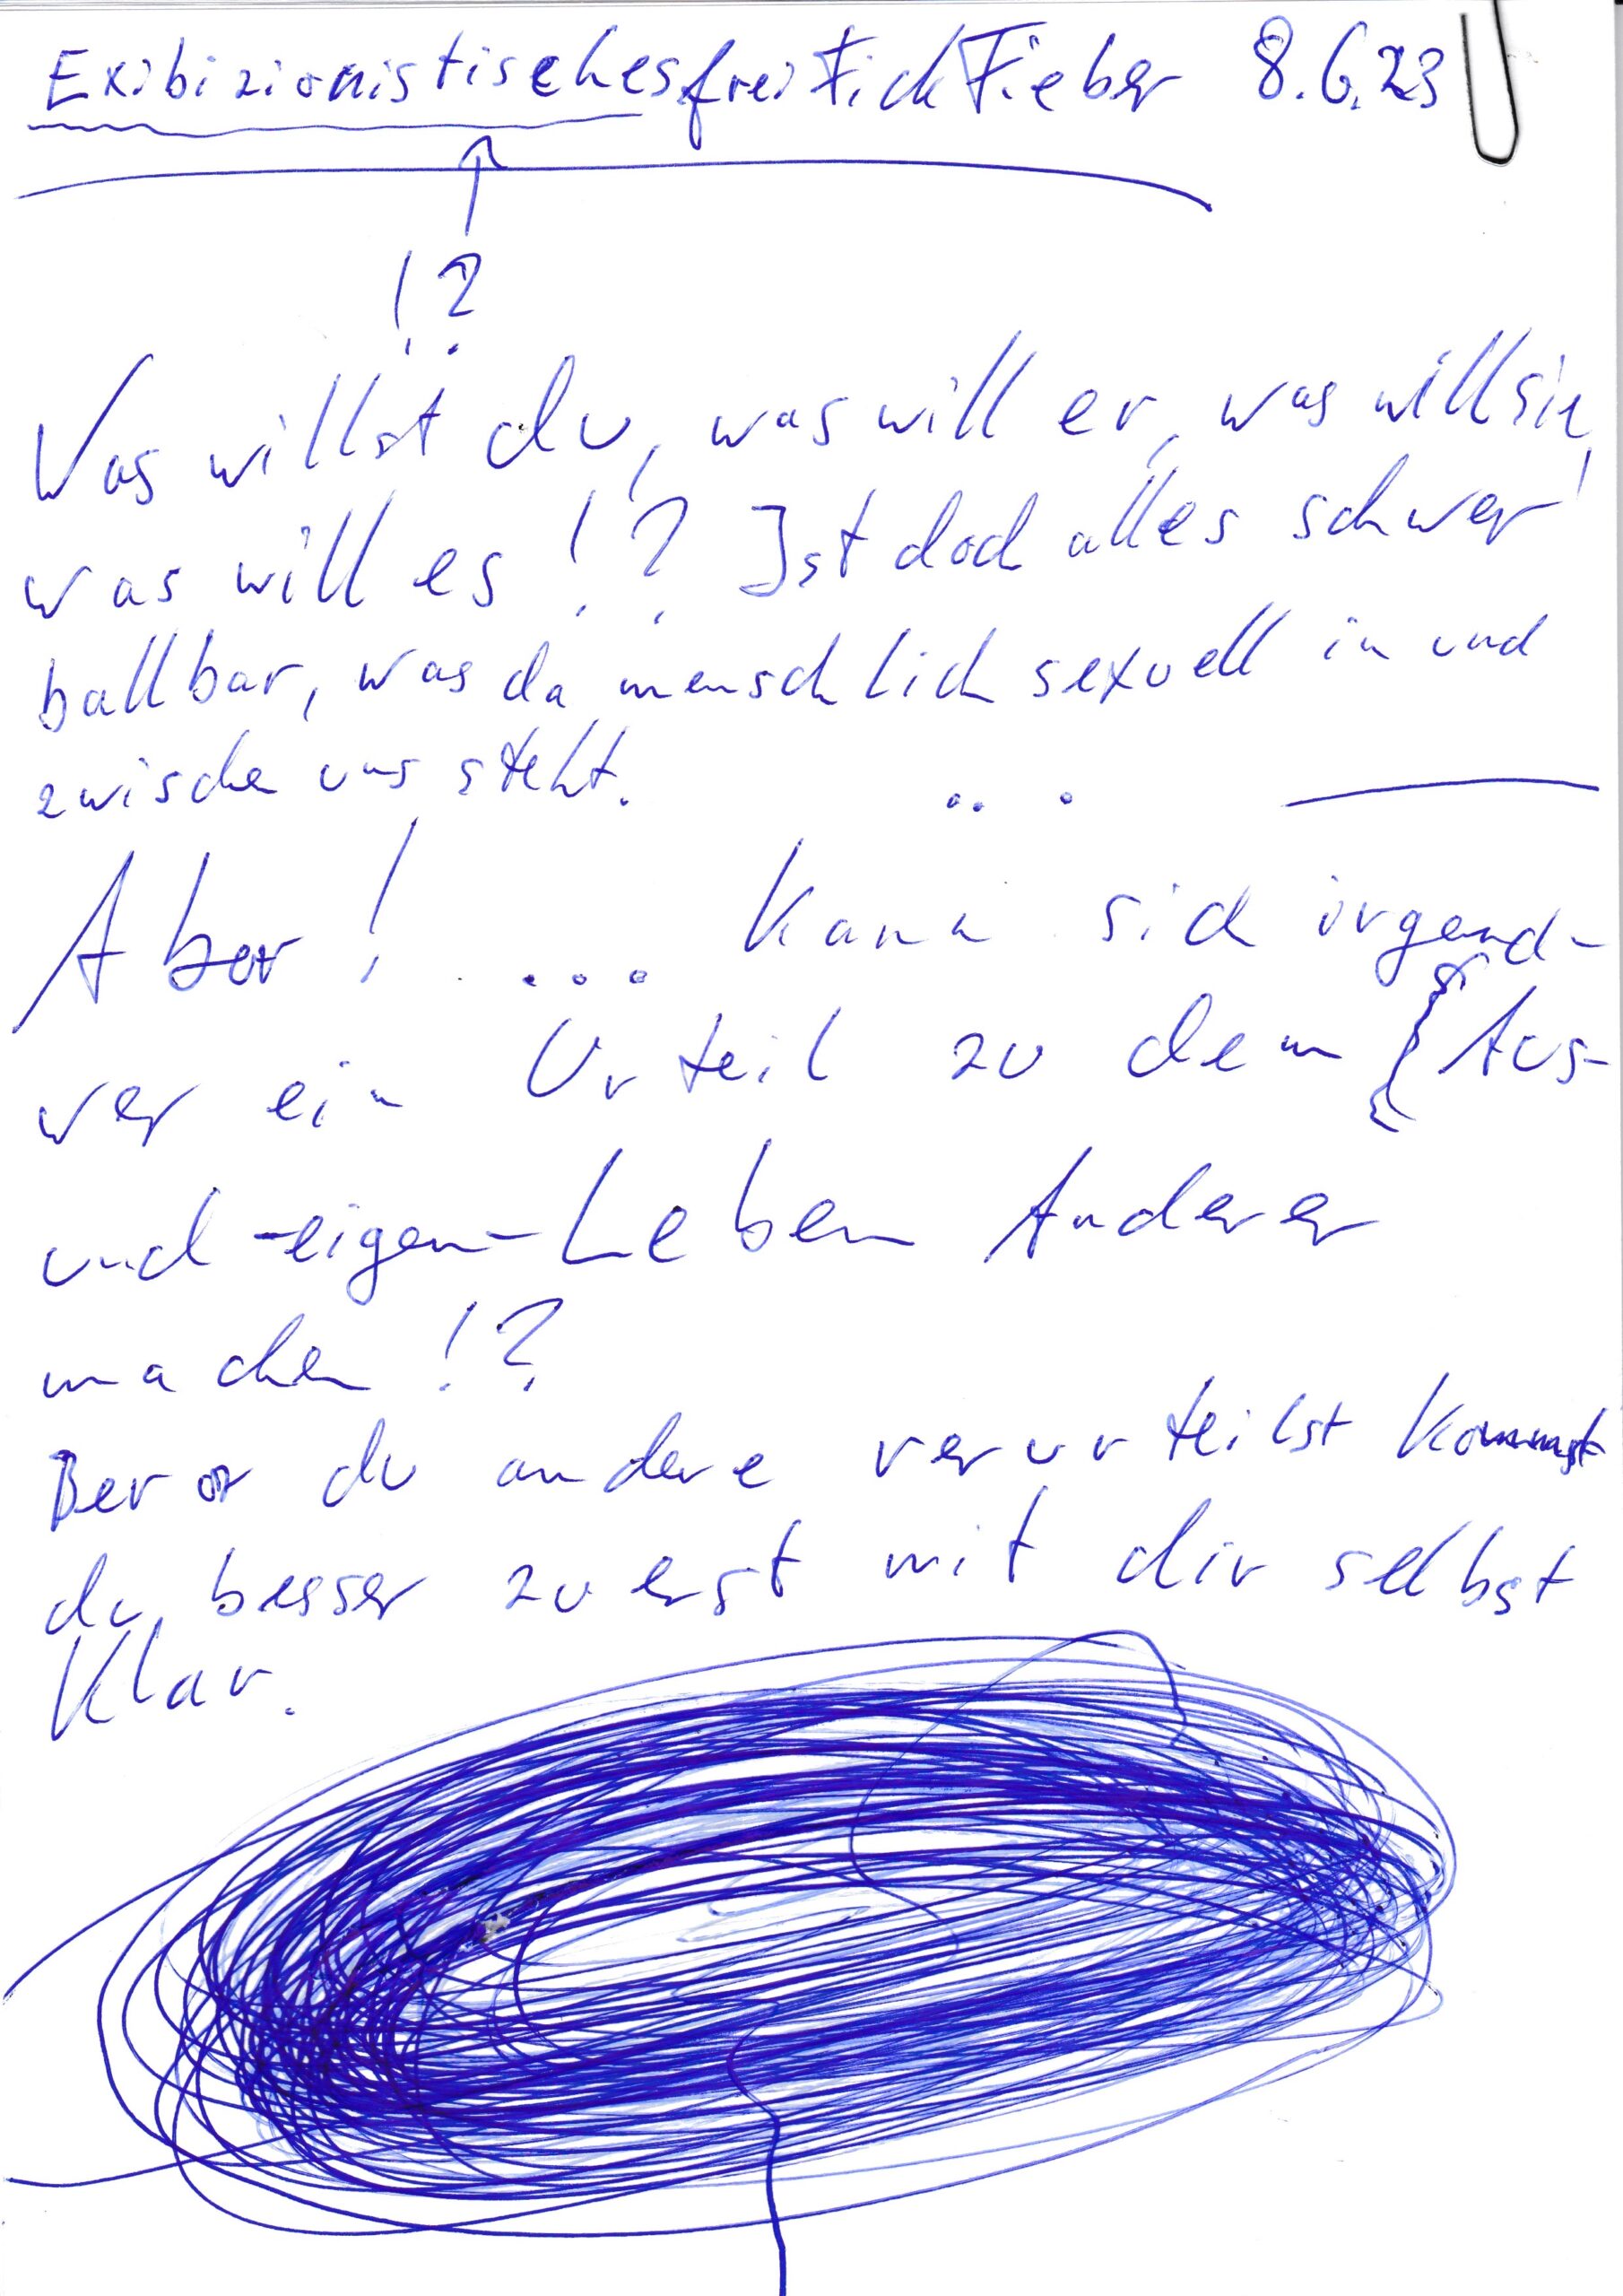 ExibizionistischesfreiFickFieber 8.6.23
!?
Was willst du, was will er, was will sie,
was will es!? Ist doch alles schwer
ballbar, was da menschlich sexuell in und
zwischen uns steht. ...
Aber! ... Kann sich irgend-
wer ein Urteil zu dem { Aus-
und -eigen-Leben Anderer
machen!?
Bevor du andere verurteilst kommst
du besser zuerst mit dir selbst
Klar.